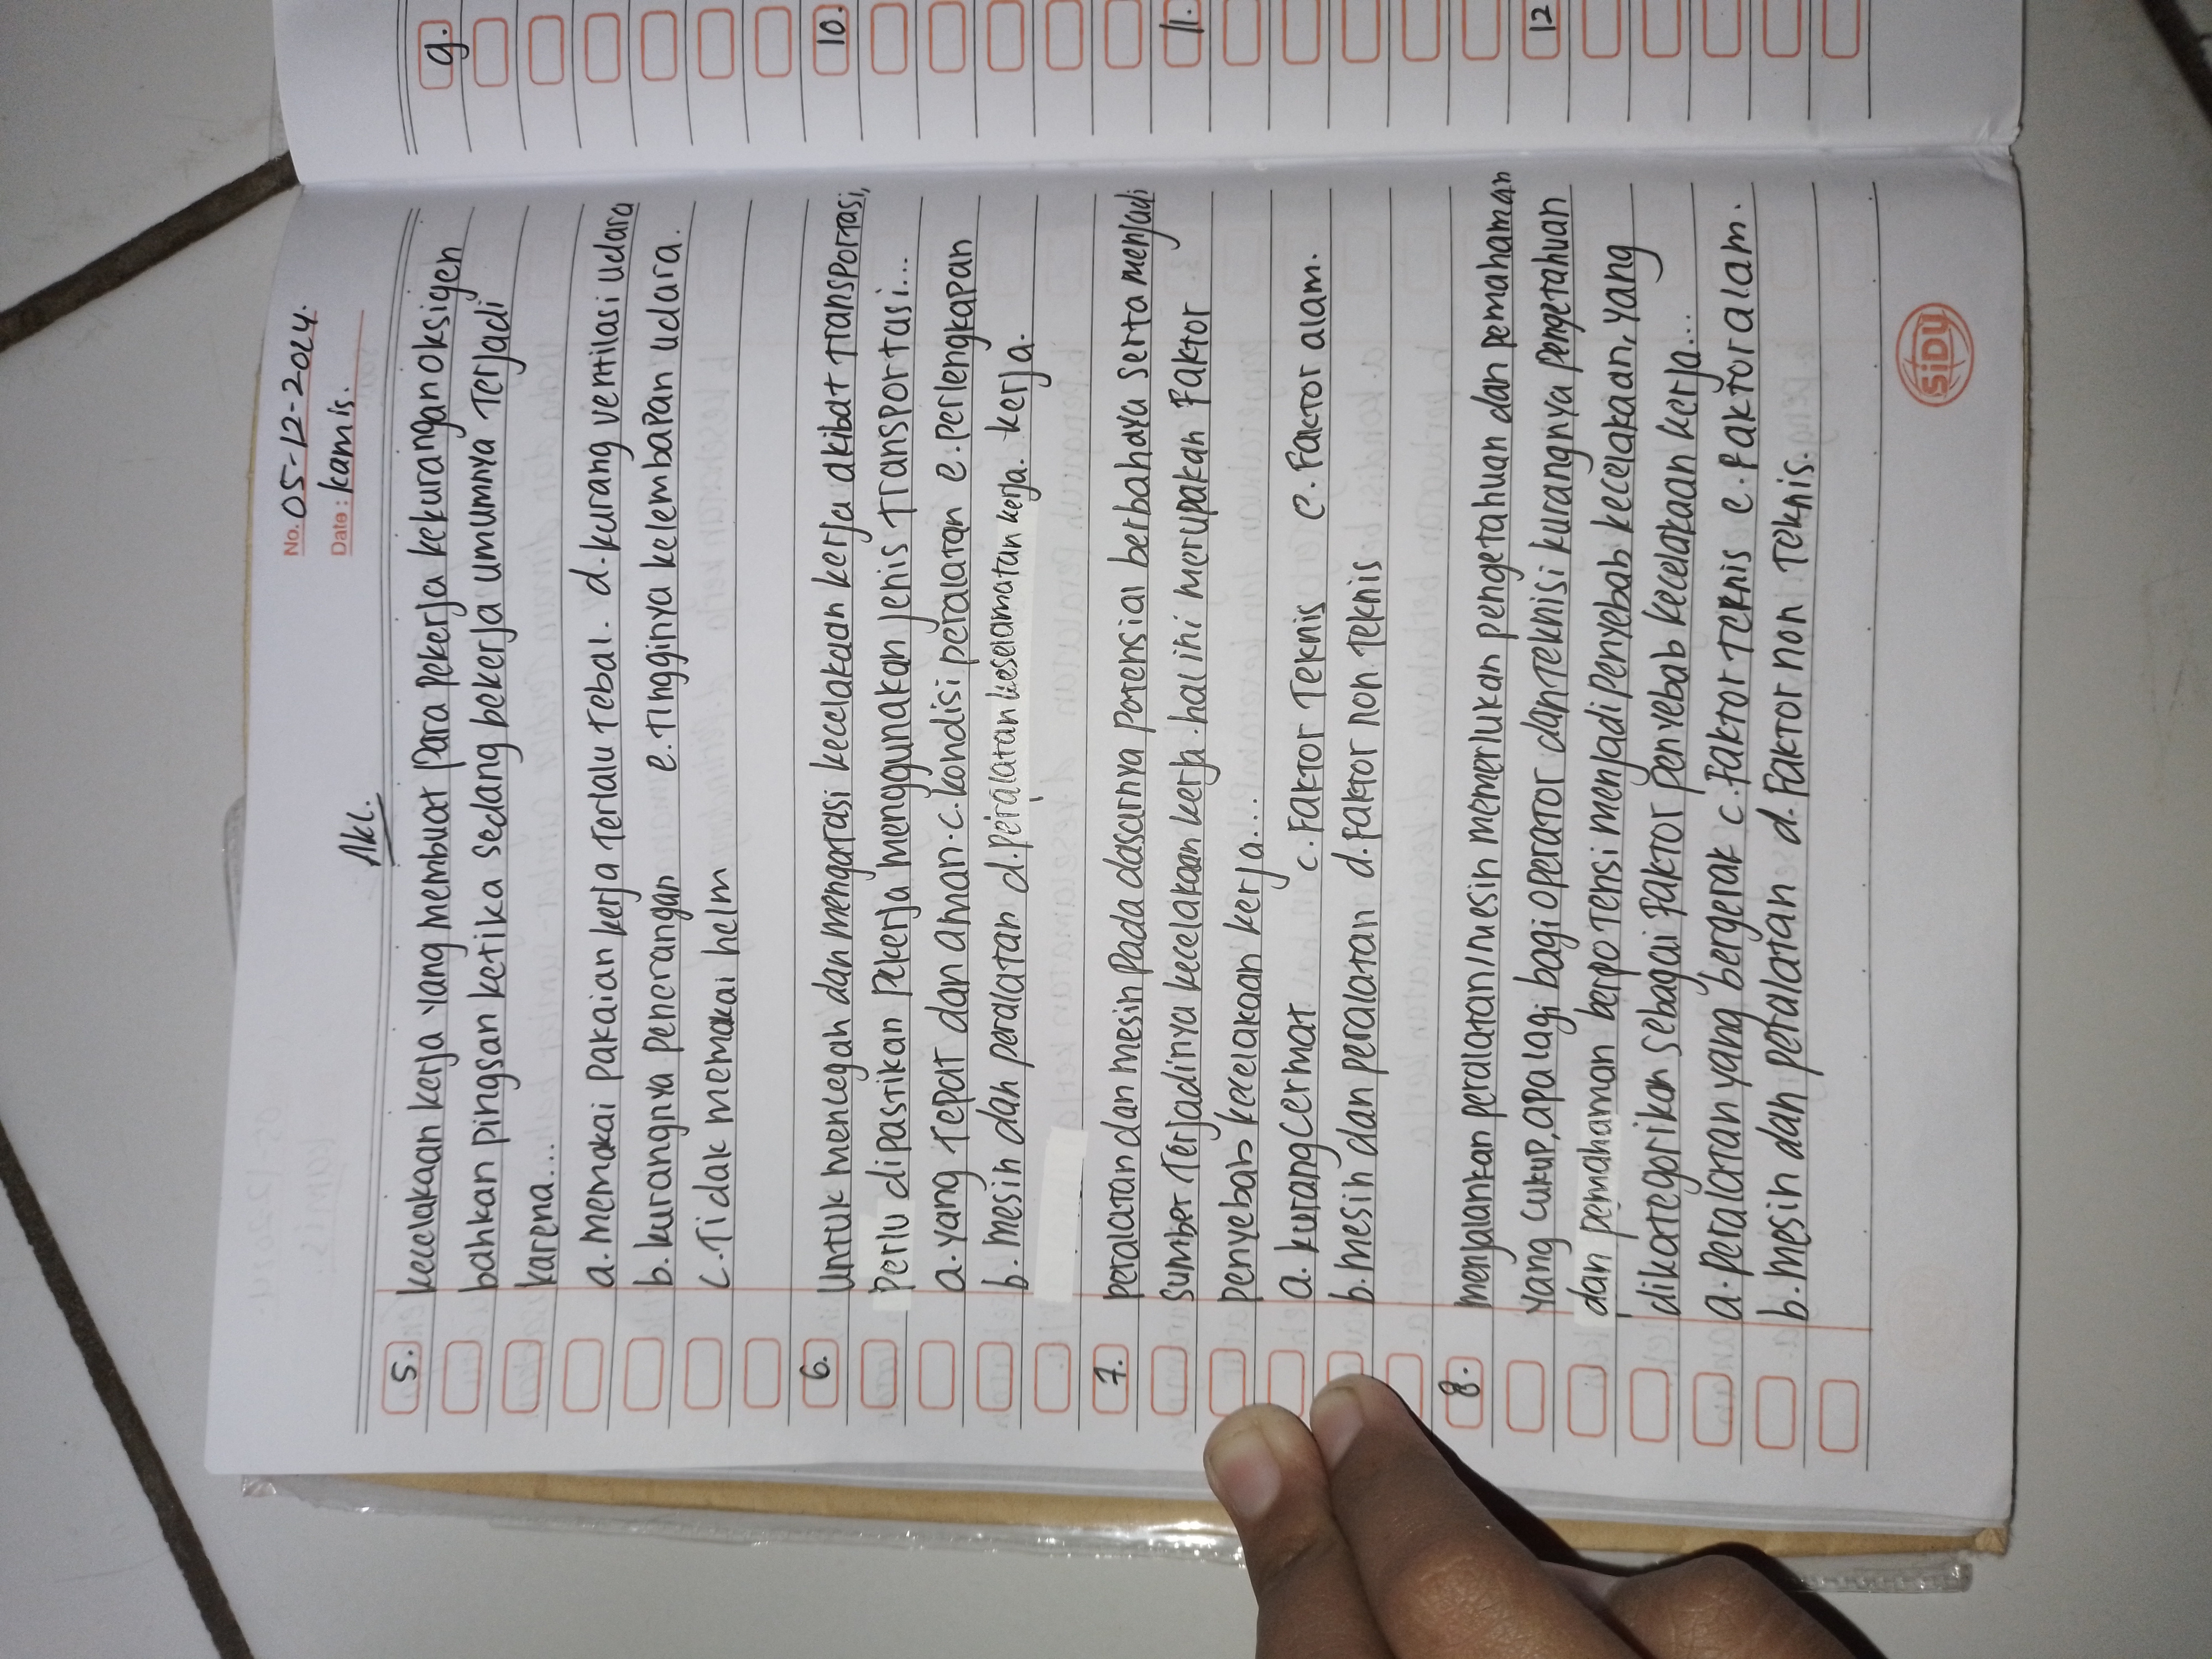 No. 05-12-2024.
Date : kamis.
Akl.
5. kecelakaan kerja yang membuat para pekerja kekurangan oksigen
bahkan pingsan ketika sedang bekerja umumnya Terjadi
karena...
a. memakai pakaian kerja terlalu tebal. d. kurang ventilasi udara
b. kurangnya penerangan e. tingginya kelembapan udara.
c. Tidak memakai helm
6. Untuk mencegah dan mengatasi kecelakaan kerja akibat transportasi,
perlu dipastikan pekerja menggunakan jenis transportasi...
a. yang tepat dan aman. c. kondisi peralatan e. perlengkapan
b. mesin dan peralatan d. peralatan keselamatan kerja. kerja.
7. peralatan dan mesin pada dasarnya potensial berbahaya serta menjadi
sumber terjadinya kecelakaan kerja. hal ini merupakan Faktor
penyebab kecelakaan kerja...
a. kurang cermat c. Faktor Teknis e. Faktor alam.
b. mesin dan peralatan d. Faktor non teknis
8. menjalankan peralatan/mesin memerlukan pengetahuan dan pemahaman
yang cukup, apalagi bagi operator dan teknisi kurangnya pengetahuan
dan pemahaman berpotensi menjadi penyebab kecelakaan, yang
dikategorikan sebagai faktor penyebab kecelakaan kerja...
a. peralatan yang bergerak c. Faktor teknis e. Faktor alam.
b. mesin dan peralatan d. Faktor non Teknis.
SiDU
9.
10.
11.
12